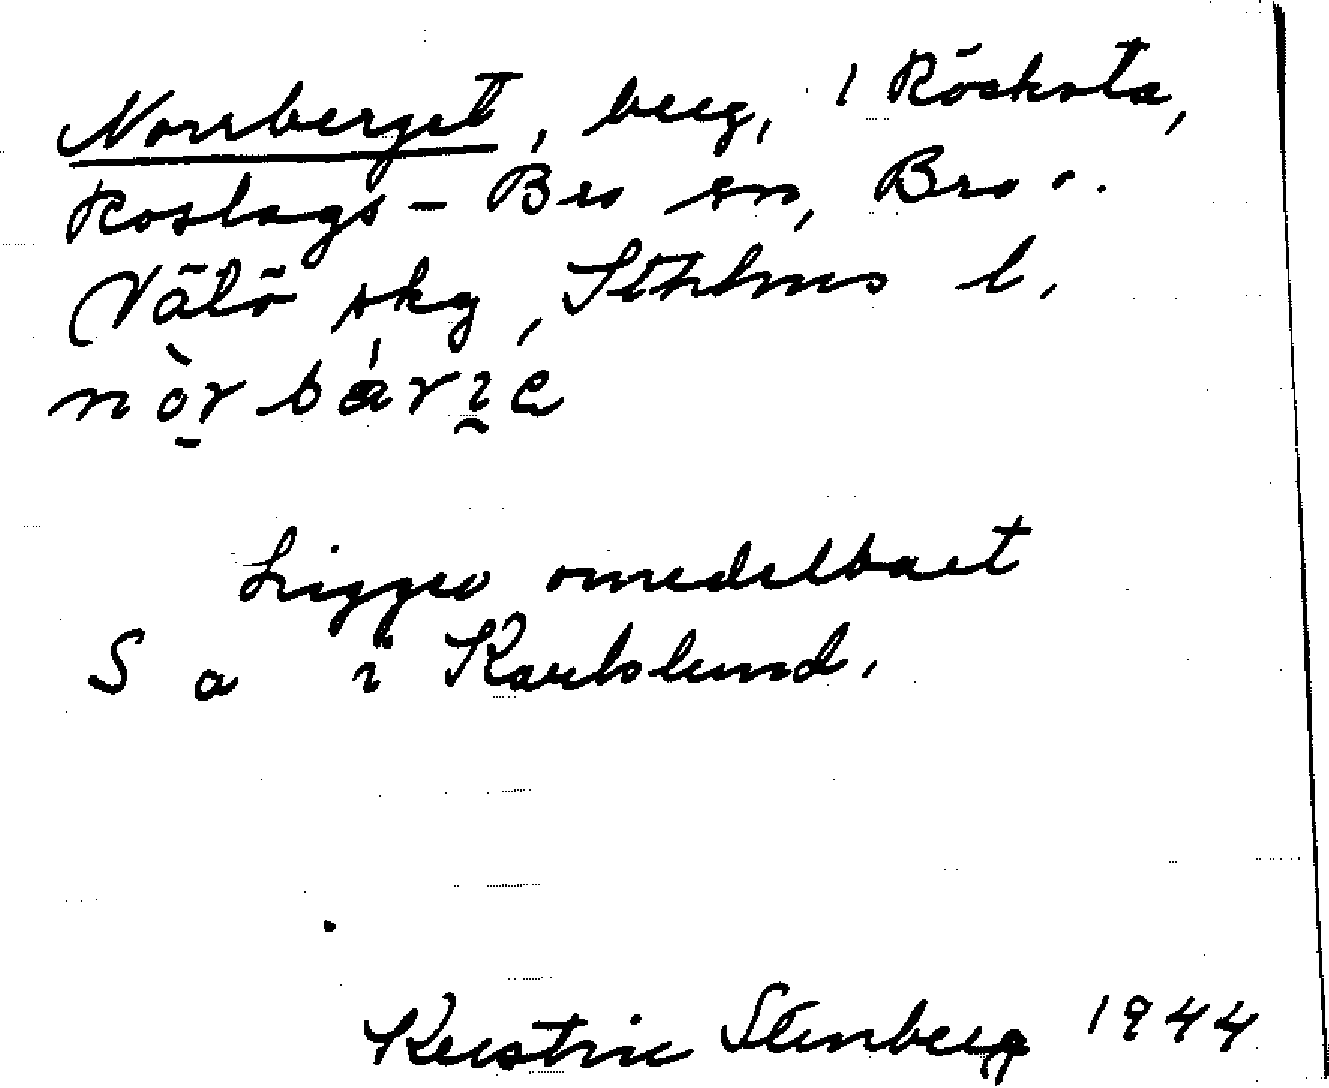 Norrberget, berg, i Röksta,
Roslags-Bro sn, Bro o.
Vätö skg, Sthlms l.
nòr bárıe
Ligger omedelbart
S o i Karlslund.
Kerstin Stenberg 1944